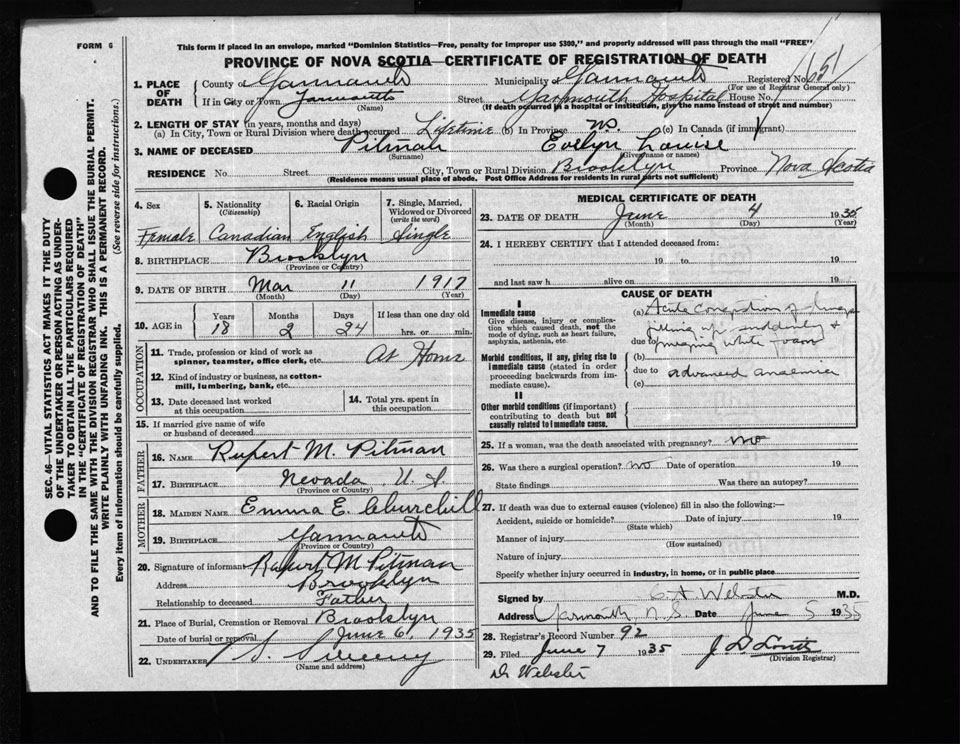 FORM 6
This form if placed in an envelope, marked "Dominion Statistics—Free, penalty for improper use $300," and properly addressed will pass through the mail "FREE"
PROVINCE OF NOVA SCOTIA—CERTIFICATE OF REGISTRATION OF DEATH
1. PLACE OF DEATH
County of Yarmouth Municipality of Yarmouth Registered No.
(For use of Registrar General only)
If in City or Town Yarmouth Street Yarmouth Hospital House No.
(Name) (If death occurred in a hospital or institution, give the name instead of street and number)
2. LENGTH OF STAY (in years, months and days)
(a) In City, Town or Rural Division where death occurred Lifetime (b) In Province N.S. (c) In Canada (if immigrant)
3. NAME OF DECEASED Pitman Evelyn Louise
(Surname) (Given name or names)
RESIDENCE No. Street City, Town or Rural Division Brooklyn Province Nova Scotia
(Residence means usual place of abode. Post Office Address for residents in rural parts not sufficient)
4. Sex Female
5. Nationality (Citizenship) Canadian
6. Racial Origin English
7. Single, Married, Widowed or Divorced (write the word) Single
8. BIRTHPLACE Brooklyn
(Province or Country)
9. DATE OF BIRTH Mar 11 1917
(Month) (Day) (Year)
10. AGE in Years Months Days If less than one day old
18 2 24 hrs. or min.
OCCUPATION
11. Trade, profession or kind of work as spinner, teamster, office clerk, etc. At Home
12. Kind of industry or business, as cotton-mill, lumbering, bank, etc.
13. Date deceased last worked at this occupation
14. Total yrs. spent in this occupation
15. If married give name of wife or husband of deceased
FATHER
16. NAME Rupert M. Pitman
17. BIRTHPLACE Nevada U.S.
(Province or Country)
MOTHER
18. MAIDEN NAME Emma E. Churchill
19. BIRTHPLACE Yarmouth
(Province or Country)
20. Signature of informant Rupert M Pitman
Address Brooklyn
Relationship to deceased Father
21. Place of Burial, Cremation or Removal Brooklyn
Date of burial or removal June 6, 1935
22. UNDERTAKER S. Sweeny
(Name and address)
MEDICAL CERTIFICATE OF DEATH
23. DATE OF DEATH June 4 1935
(Month) (Day) (Year)
24. I HEREBY CERTIFY that I attended deceased from:
19 to 19
and last saw h alive on 19
CAUSE OF DEATH
I
Immediate cause
Give disease, injury or complication which caused death, not the mode of dying, such as heart failure, asphyxia, asthenia, etc.
Morbid conditions, if any, giving rise to immediate cause (stated in order proceeding backwards from immediate cause).
II
Other morbid conditions (if important) contributing to death but not causally related to immediate cause.
(a) Acute Congestion of lungs
filling up suddenly &
due to white foam
(b)
due to advanced anaemia
(c)
25. If a woman, was the death associated with pregnancy? no
26. Was there a surgical operation? no Date of operation 19
State findings Was there an autopsy?
27. If death was due to external causes (violence) fill in also the following:—
Accident, suicide or homicide? Date of injury 19
(State which)
Manner of injury
(How sustained)
Nature of injury
Specify whether injury occurred in industry, in home, or in public place
Signed by Webster M.D.
Address Yarmouth, N.S. Date June 5 1935
28. Registrar's Record Number 92
29. Filed June 7 1935
(Division Registrar)
Dr Webster
SEC. 46—VITAL STATISTICS ACT MAKES IT THE DUTY
OF THE UNDERTAKER OR PERSON ACTING AS UNDER-
TAKER TO OBTAIN ALL THE PARTICULARS REQUIRED
IN THE "CERTIFICATE OF REGISTRATION OF DEATH"
AND TO FILE THE SAME WITH THE DIVISION REGISTRAR WHO SHALL ISSUE THE BURIAL PERMIT.
WRITE PLAINLY WITH UNFADING INK. THIS IS A PERMANENT RECORD.
Every item of information should be carefully supplied. (See reverse side for instructions.)